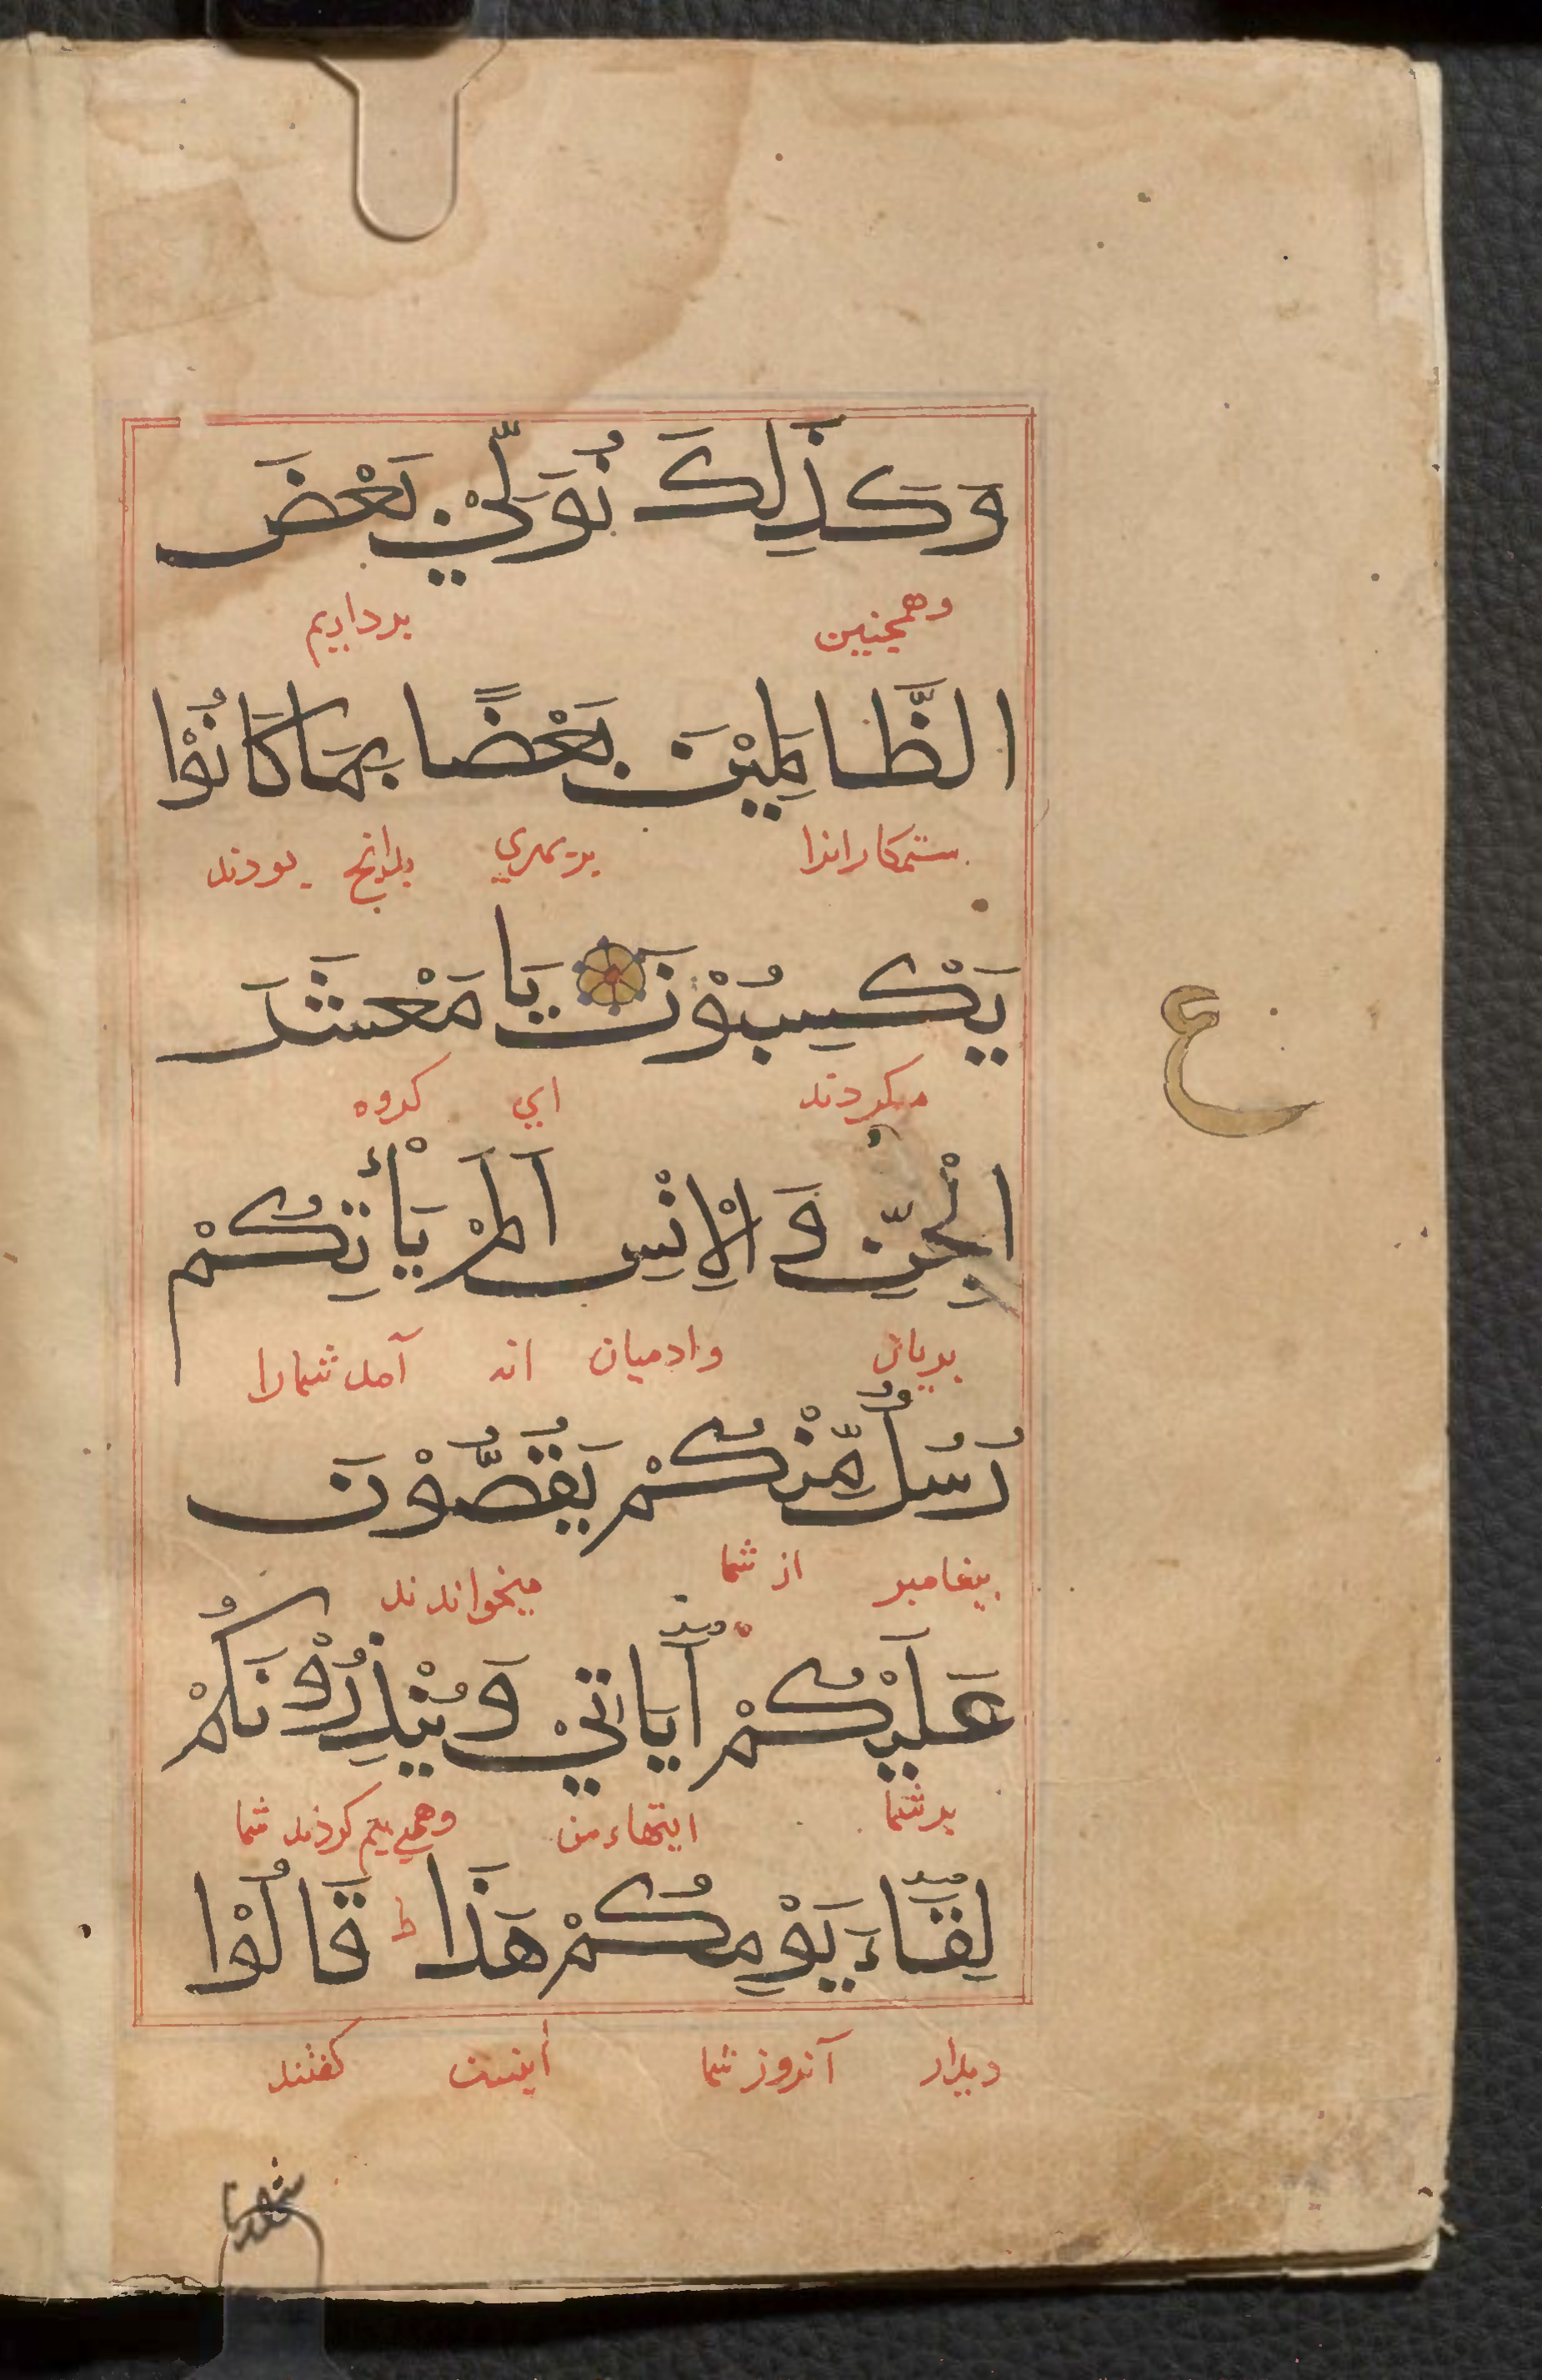 وَكَذَلِكَ نُوَلِّيْ بَعْضَ
وهمچنین برداریم
الظَّالِمِيْنَ بَعْضًا بِمَا كَانُوْا
ستمکارانرا بدانچ بودند
يَكْسِبُوْنَ يَا مَعْشَرَ
میکردند ای کروه
ع
الْجِنِّ وَالْاِنْسِ اَلَمْ يَأْتِكُمْ
پریان وادمیان انه آمد شمارا
رُسُلٌ مِّنْكُمْ يَقُصُّوْنَ
پیغامبر از شما میخواندند
عَلَيْكُمْ اَيَاتِيْ وَيُنْذِرُوْنَكُمْ
بر شما ایتهاء من وهمی بیم کردند شما
لِقَاءَ يَوْمِكُمْ هَذَا ط قَالُوْا
دیدار آنروز شما اینست کفتند
شهدنا